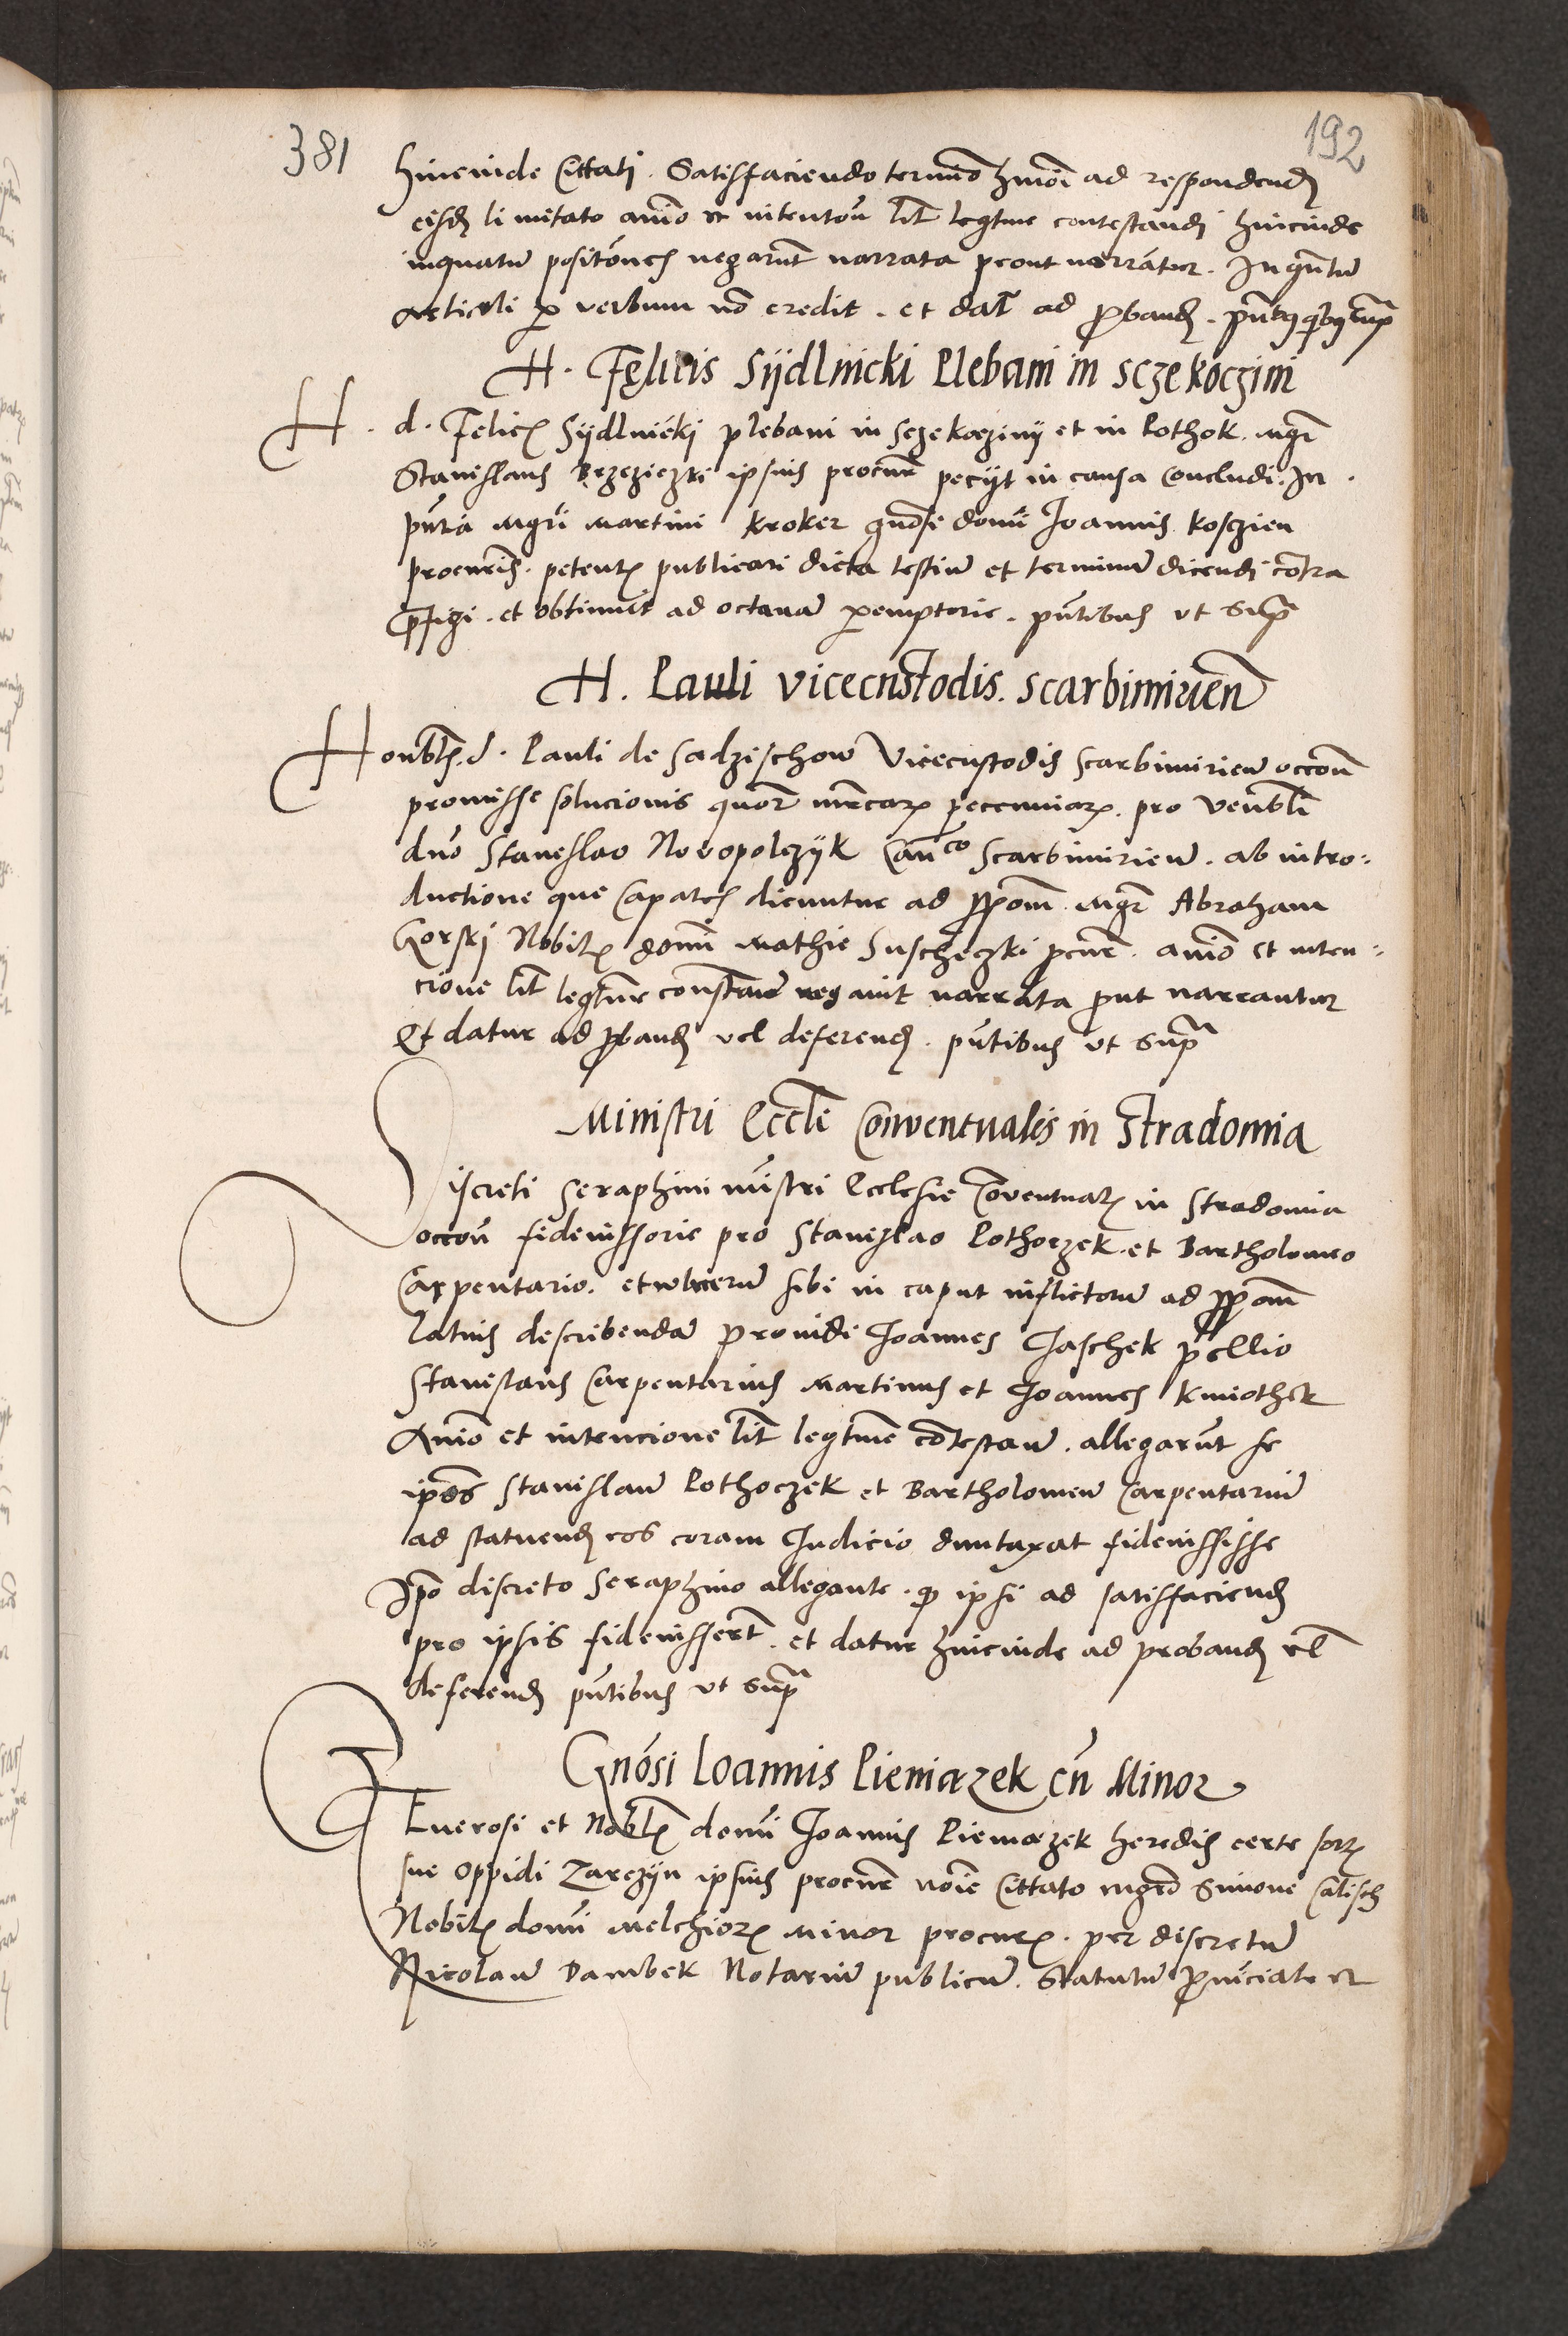 381
192
hincinde Cittati. Satisfaciendo termino hmoi ad respondend
eisd li mitato animo et intentou lit legtme contestandi hincinde
inquatum positones negarunt narrata prout narratur. In qntum
Articuli per verbum no credit. et dat ad proband. pntibus quibus supra
H. Felicis Sijdlnicki Plebani in Sczekoczini
H. d. Felicis Sijdlnicki plebani in Sczekoczinij et in Pothok. mgr
Stanislaus Brzeziczki ipsius procur pecijt in causa Concludi. In
pntia mgri Martini Kroker gnose domi Joannis Kosczien
procuris. petentis publicari dicta testium et terminum dicendi contra
prefigi. et obtinuit ad octauam peremptorie. pntibus ut supra
H. Pauli vicecustodis. scarbimirien
Honblis. d. Pauli de Sadzischow Vicecustodis Scarbimirien occone
promisse solucionis quor mrcar pecuniar. pro Venbli
dno Stanislao Nowopolczijk Canco Scarbimirien. ab intro=
ductione que Capates dicuntur ad ppom. mgr Abraham
Gorski Nobilis domi Mathie Suscheczki pcur. animo et inten=
cione lit legtime constan negauit narrata prout narrantur
Et datur ad proband vel deferend. pntibus ut supra
Ministri Eccle Conventualis in Stradomia
Discreti Seraphini mistri Ecclesie Conventualis in Stradomia
occou fideiussorie pro Stanislao Pothoczek et Bartholomeo
Carpentario. et wlnerum sibi in caput inflictorum ad ppom
latius describendam Prouidi Joannes Jaschek pellio
Stanislaus Carpentarius Martinus et Joannes Kmiothek
Animo et intencione lit legtime contestan. allegarunt se
ipsos Stanislaum Pothoczek et Bartholomeum Carpentarium
ad statuend eos coram Judicio duntaxat fideiussisse
Ipso discreto Seraphino allegante. quod ipsi ad satisfaciend
pro ipsis fideiussert. et datur hincinde ad proband vel
deferend pntibus ut supra
Gnosi Ioannis Pieniazek cum Minor
Generosi et Noblis domi Joannis Pieniazek heredis certe sortis
sue oppidi Zarczijn ipsius procur noie Cittato mgro Simone Calisch
Nobilis domi Melchioris Minor procuris. per discretum
Nicolaum Dambek Notarium publicum. Statutum pronuciate et